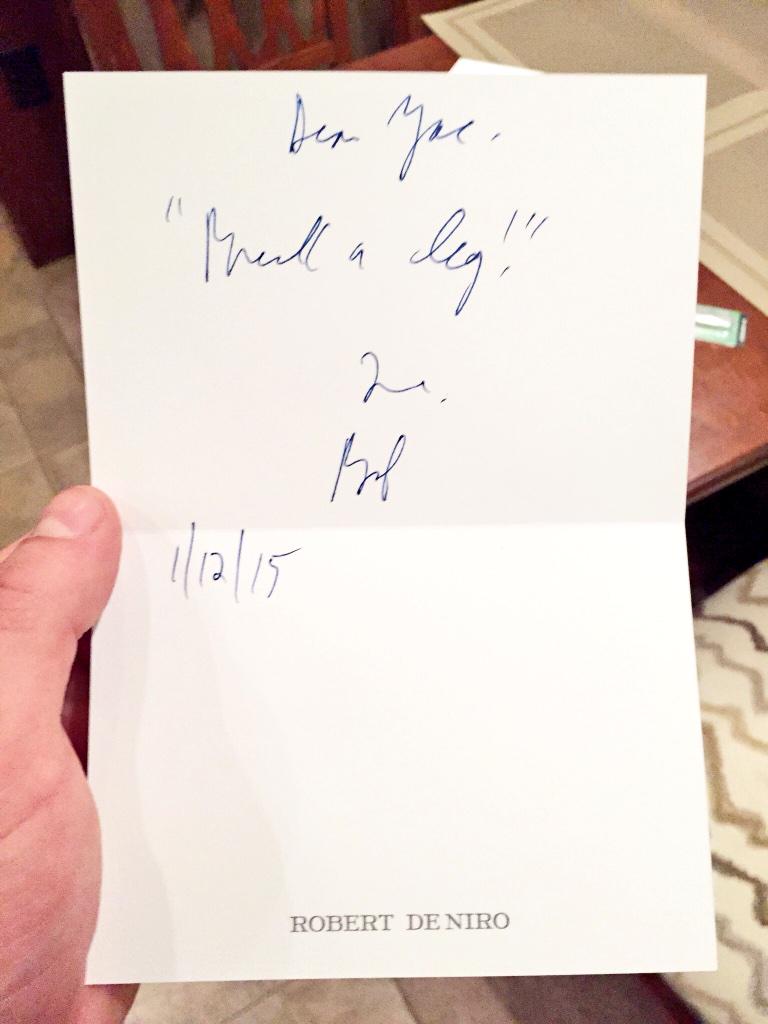 Dear
"Break a leg!"
Bob
1/12/15
ROBERT DE NIRO